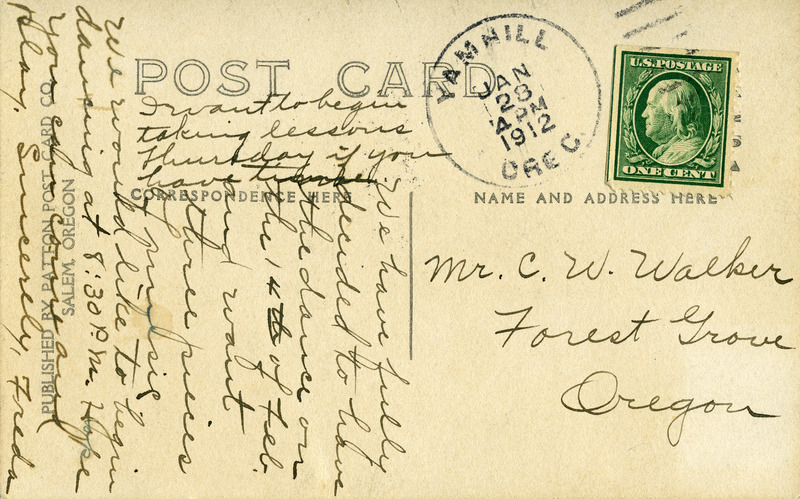 POST CARD
YAMHILL
JAN
28
4 PM
1912
OREG.
U.S. POSTAGE
ONE CENT
CORRESPONDENCE HERE
NAME AND ADDRESS HERE
PUBLISHED BY PATTON POST CARD CO.
SALEM, OREGON
Mr. C. W. Walker
Forest Grove
Oregon
We have fully
decided to have
the dance on
the 14th of Feb.
and want
three pieces
of music
We would like to begin
dancing at 8:30 P.M. Hope
you can come and
play. Sincerely, Freda
I want to begin
taking lessons
Thursday if you
have time.